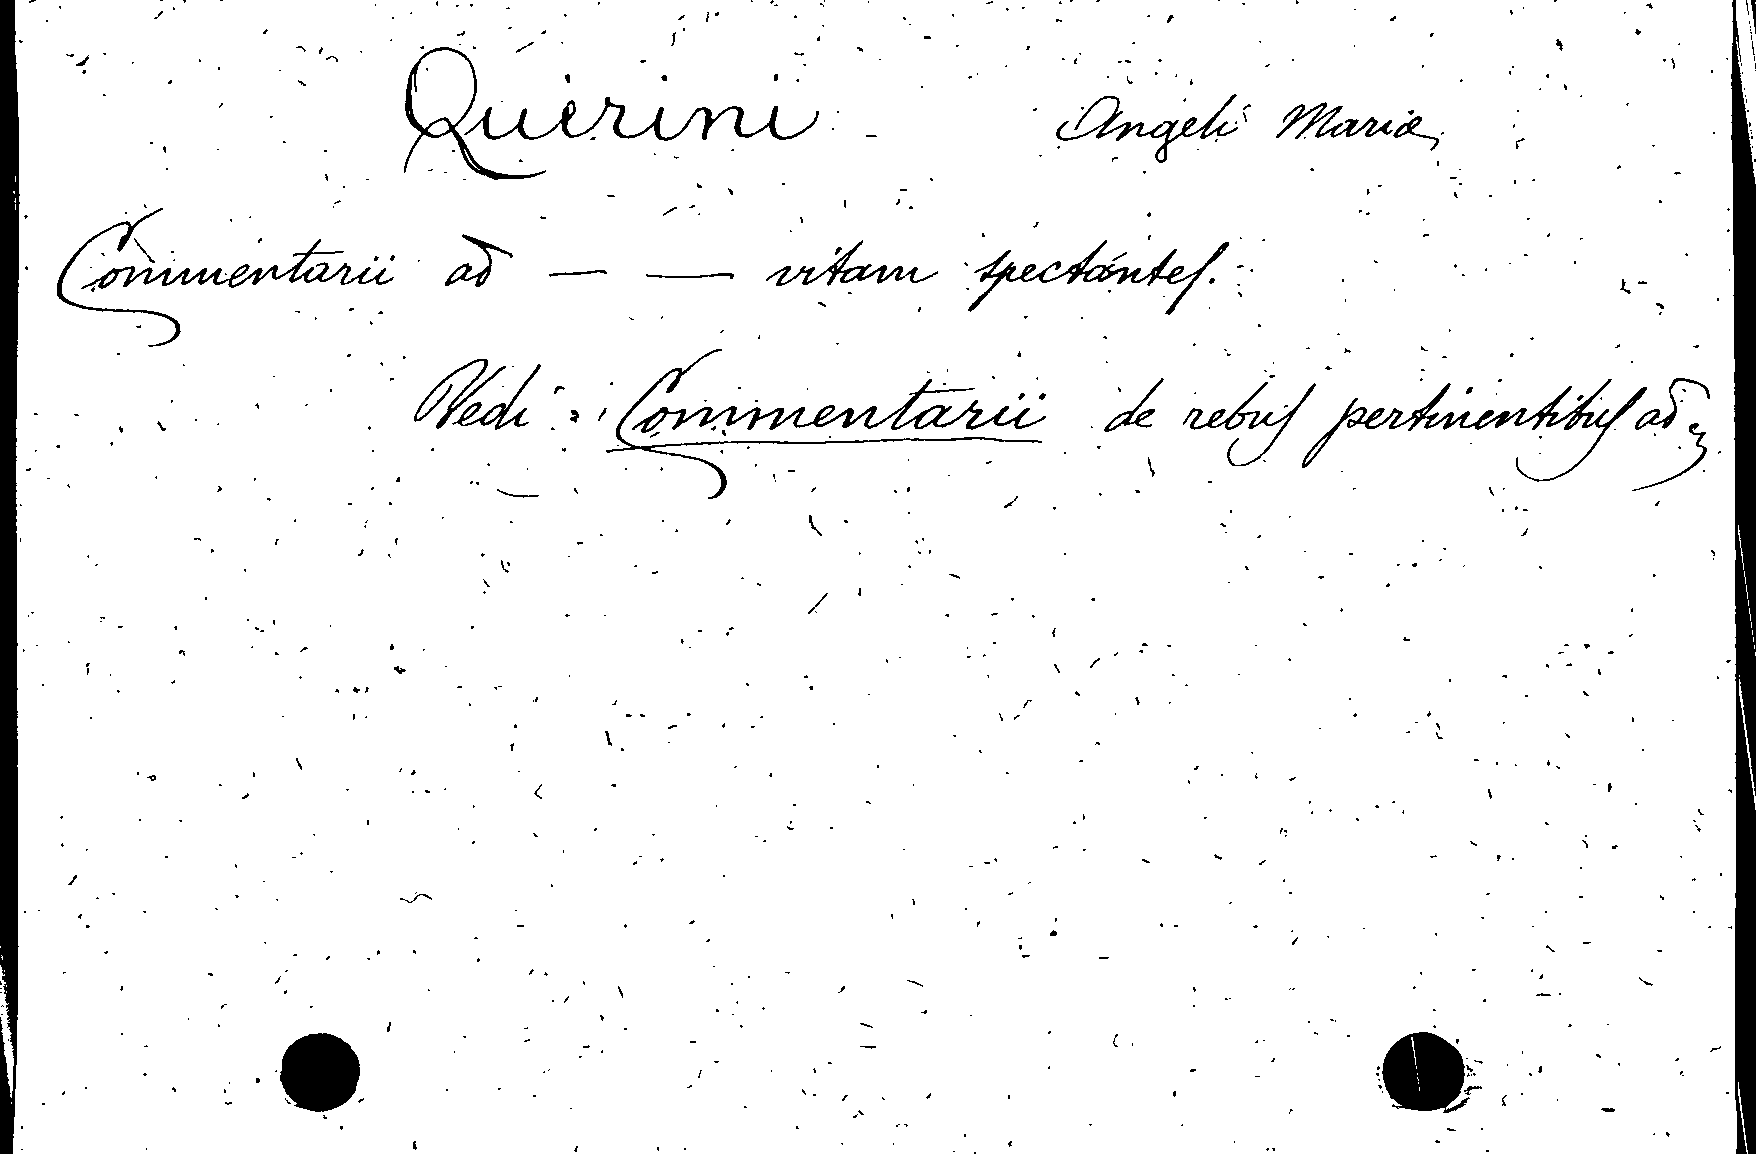 Querini Angeli Mariæ
Commentarii ad — — vitam spectantes.
Vedi: Commentarii de rebus pertinentibus ad